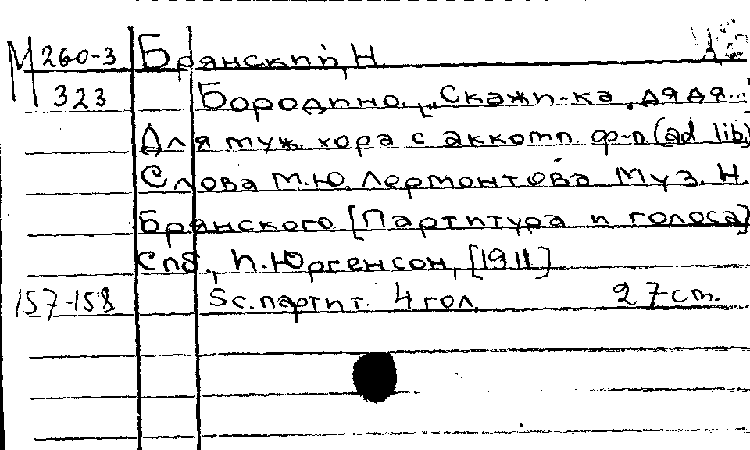 М 260-3 Брянский, Н.
323 Бородино. „Скажи-ка, дядя...“
Для муж. хора с аккомп. ф-п (ad lib)
Слова М.Ю. Лермонтова. Муз. Н.
Брянского [Партитура и голоса]
Спб., П. Юргенсон, [1911]
157-158 5с. партит. 4 гол. 27 cm.